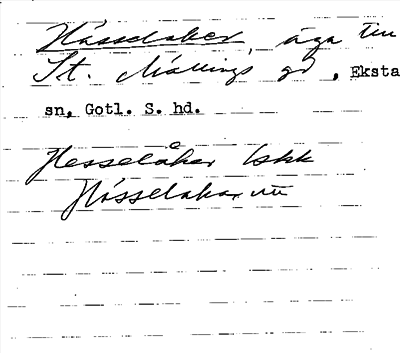 Hässelåker, äga till
St. Mällings gd, Eksta
sn, Gotl. S. hd.
Hesselåker Lskk
Hässelåka,